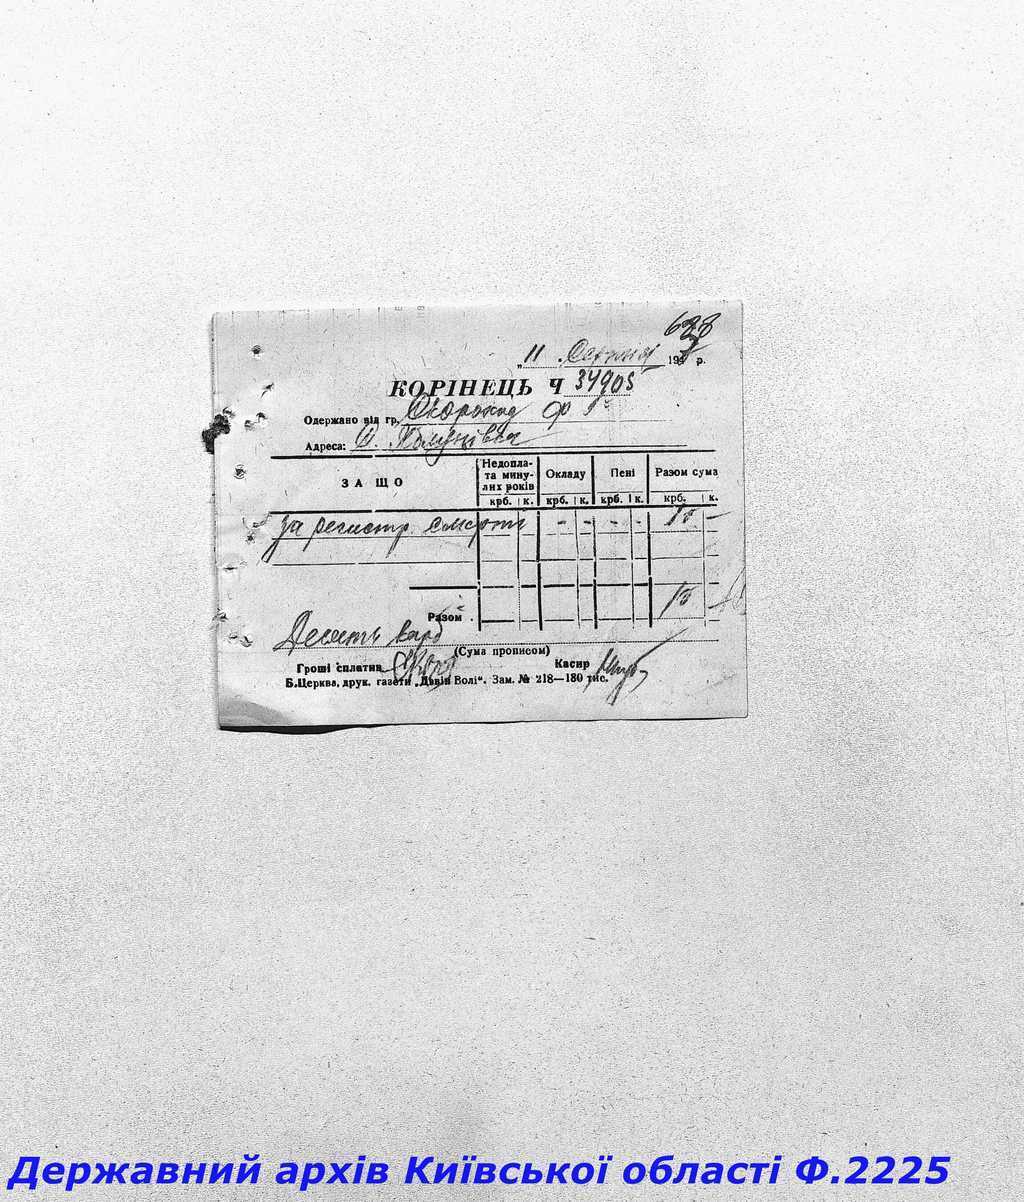 638
„ 11 „ Серпня 194 р.
КОРІНЕЦЬ Ч 34905
Одержано від гр. Скороход Ф
Адреса: с.
ЗА ЩО Недоплата минулих років Окладу Пені Разом сума
крб. к. крб. к. крб. к. крб. к.
за регистр. смерти - - - - 10 -
Разом 10 -
Десять карб
(Сума прописом)
Гроші сплатив Касир
Б.Церква, друк. газети „Дзвін Волі“. Зам. № 218—180 тис.
Державний архів Київської області Ф.2225